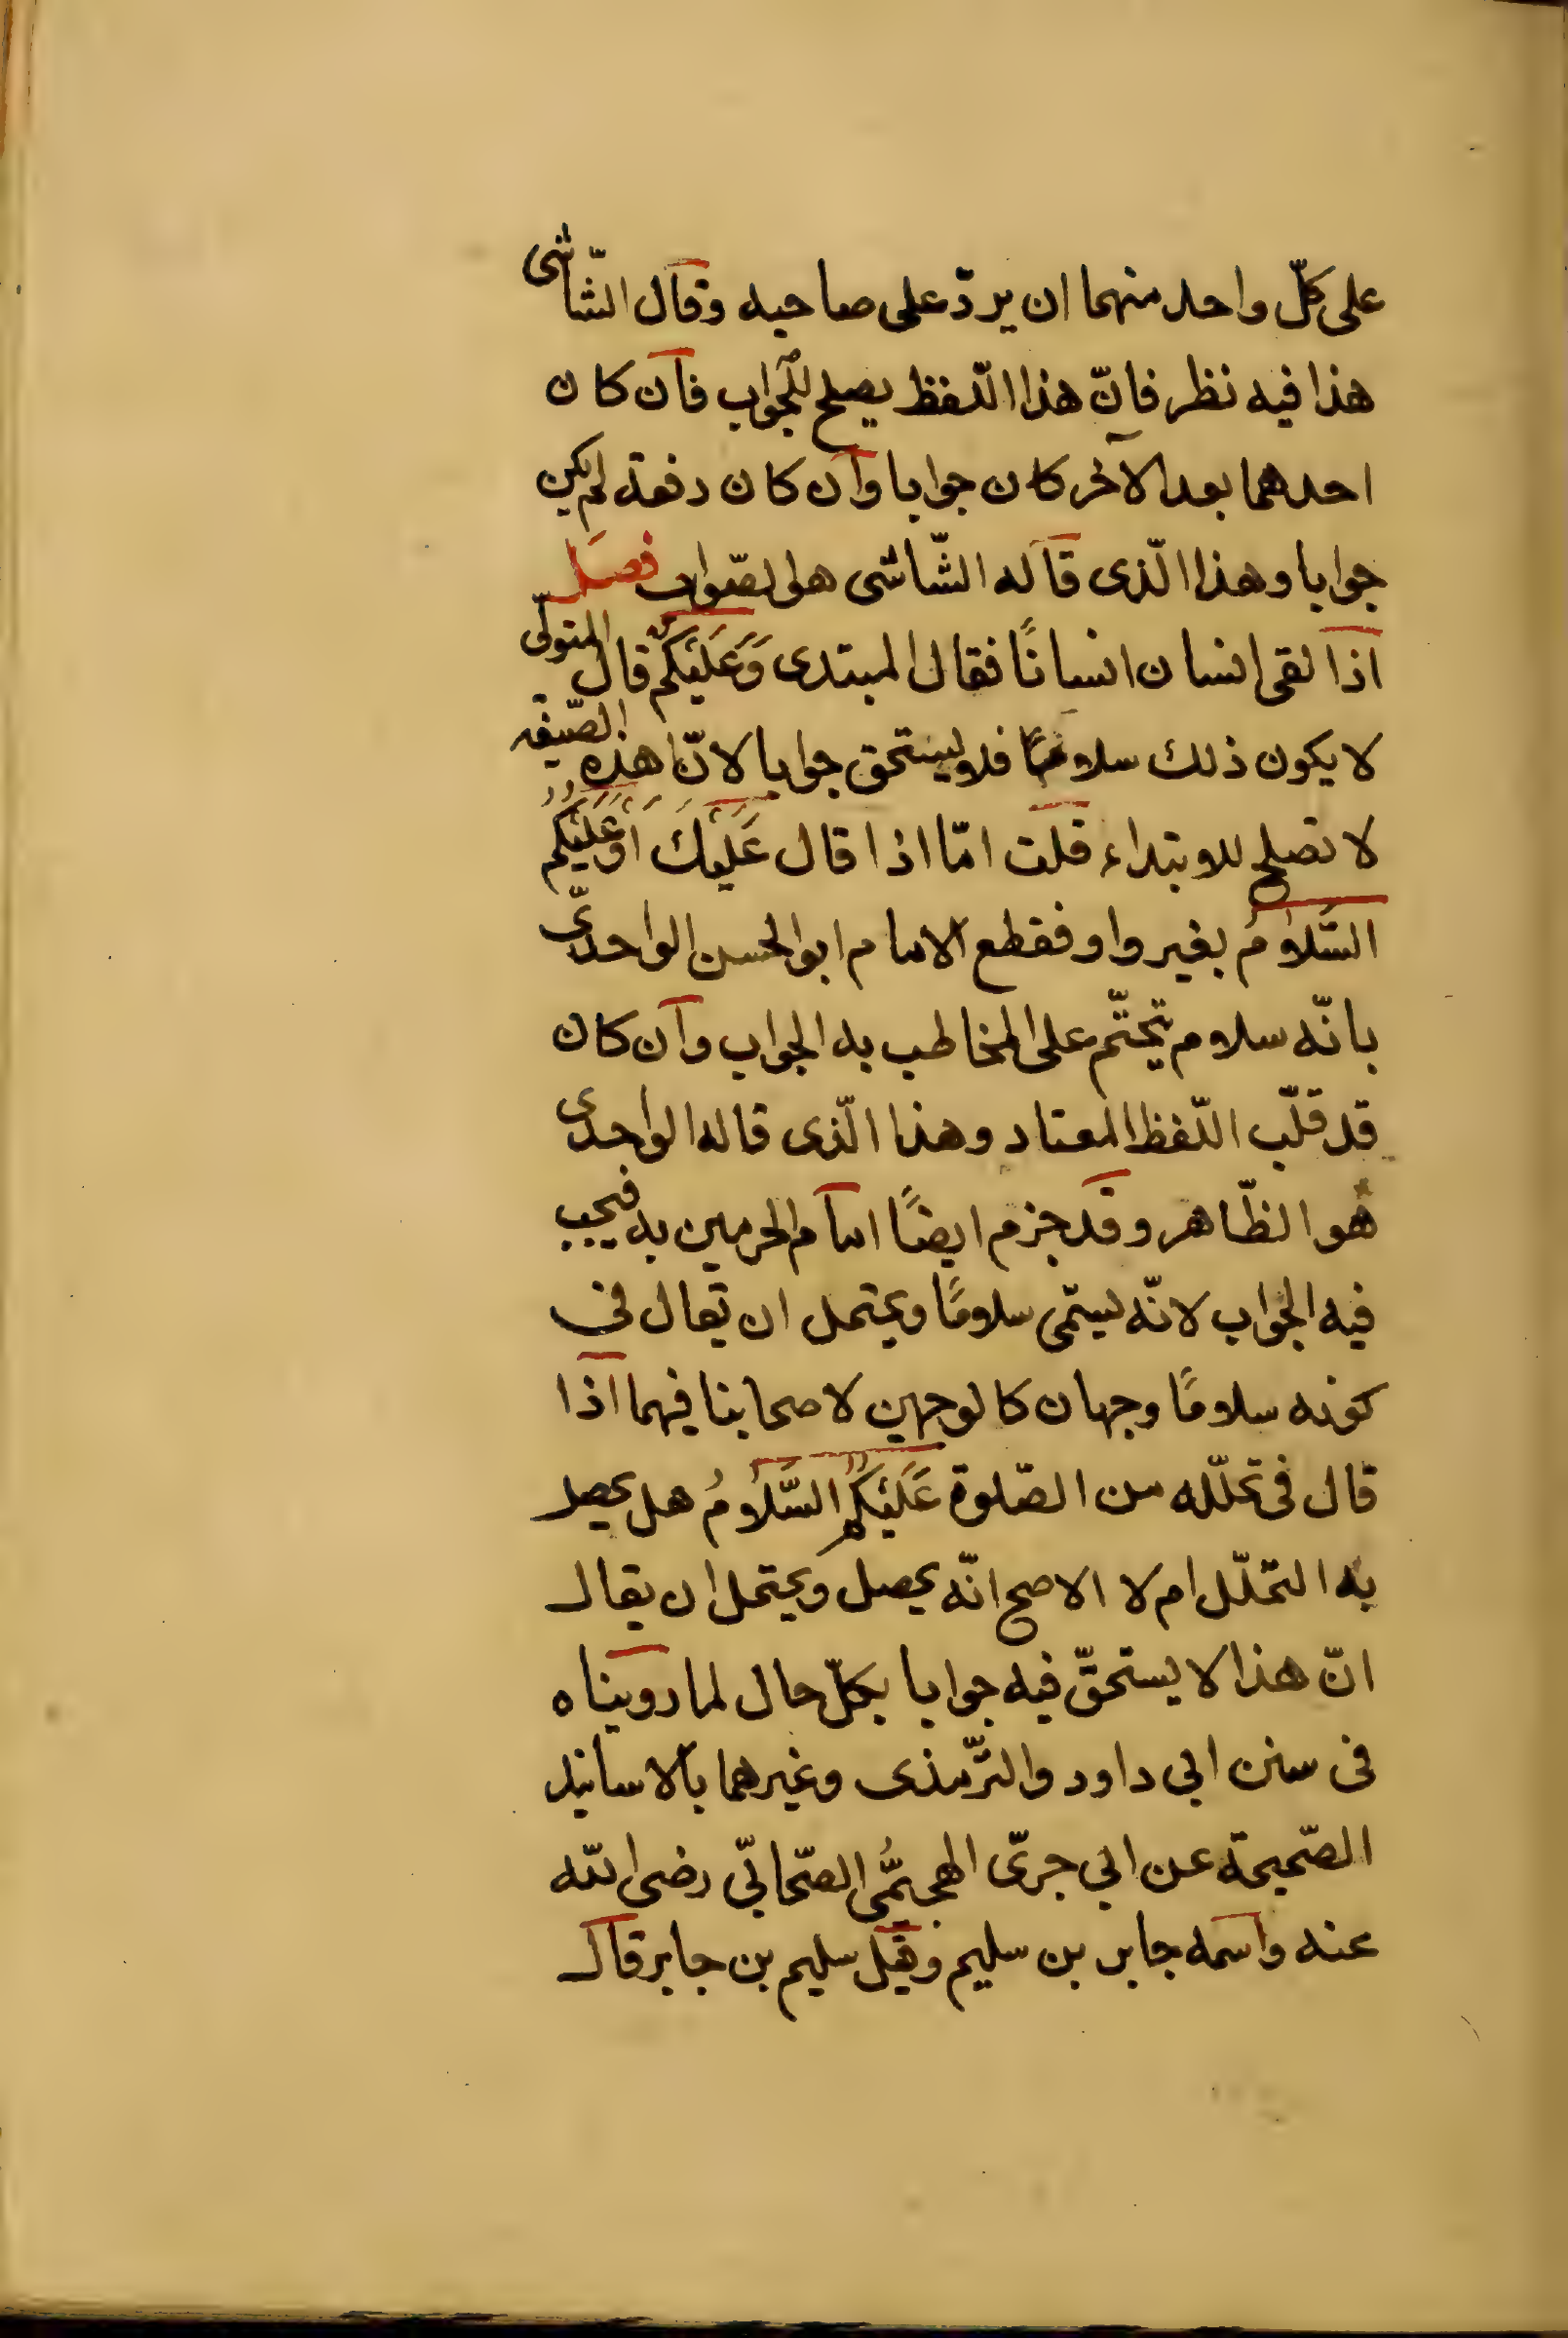 على كلّ واحد منهما ان يردّ على صاحبه وقال الشّاشى
هذا فيه نظر فانّ هذا اللّفظ يصلح للجواب فان كان
احدهما بعد الآخر كان جوابا وان كان دفعة لم يكن
جوابا وهذا الّذى قاله الشّاشى هو الصّواب فصل
اذا لقى انسان انسانًا فقال المبتدى وَعَلَيْكُمْ قال المتولّى
لا يكون ذلك سلامًا فلا يستحق جوابا لانّ هذه الصّيغة
لا تصلح للابتداء قلت امّا اذا قال عَلَيْكَ اَوْ عَلَيْكُمُ
السَّلَامُ بغير واو فقطع الامام ابو الحسن الواحدىّ
بانّه سلام يتحتّم على المخاطب به الجواب وان كان
قد قلّب اللّفظ المعتاد وهذا الّذى قاله الواحدى
هو الظّاهر وقد جزم ايضًا امام الحرمين به فيجب
فيه الجواب لانّه يسمّى سلامًا ويحتمل ان يقال فى
كونه سلامًا وجهان كالوجهين لاصحابنا فيهما اذا
قال فى تحلّله من الصّلوة عَلَيْكُمُ السَّلَامُ هل يحصل
به التحلّل ام لا الاصح انّه يحصل ويحتمل ان يقال
انّ هذا لا يستحقّ فيه جوابا بكلّ حال لما رويناه
فى سنن ابى داود والتّرمذى وغيرهما بالاسانيد
الصّحيحة عن ابى جرىّ الهجيمُّى الصّحابىّ رضى اللّه
عنه واسمه جابر بن سليم وقيل سليم بن جابر قال